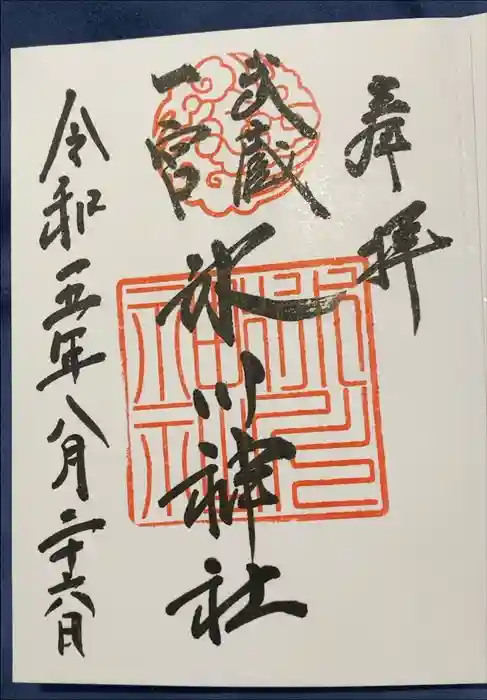 奉拝
武蔵
一宮
氷川神社
令和五年八月二十六日
氷川
神社